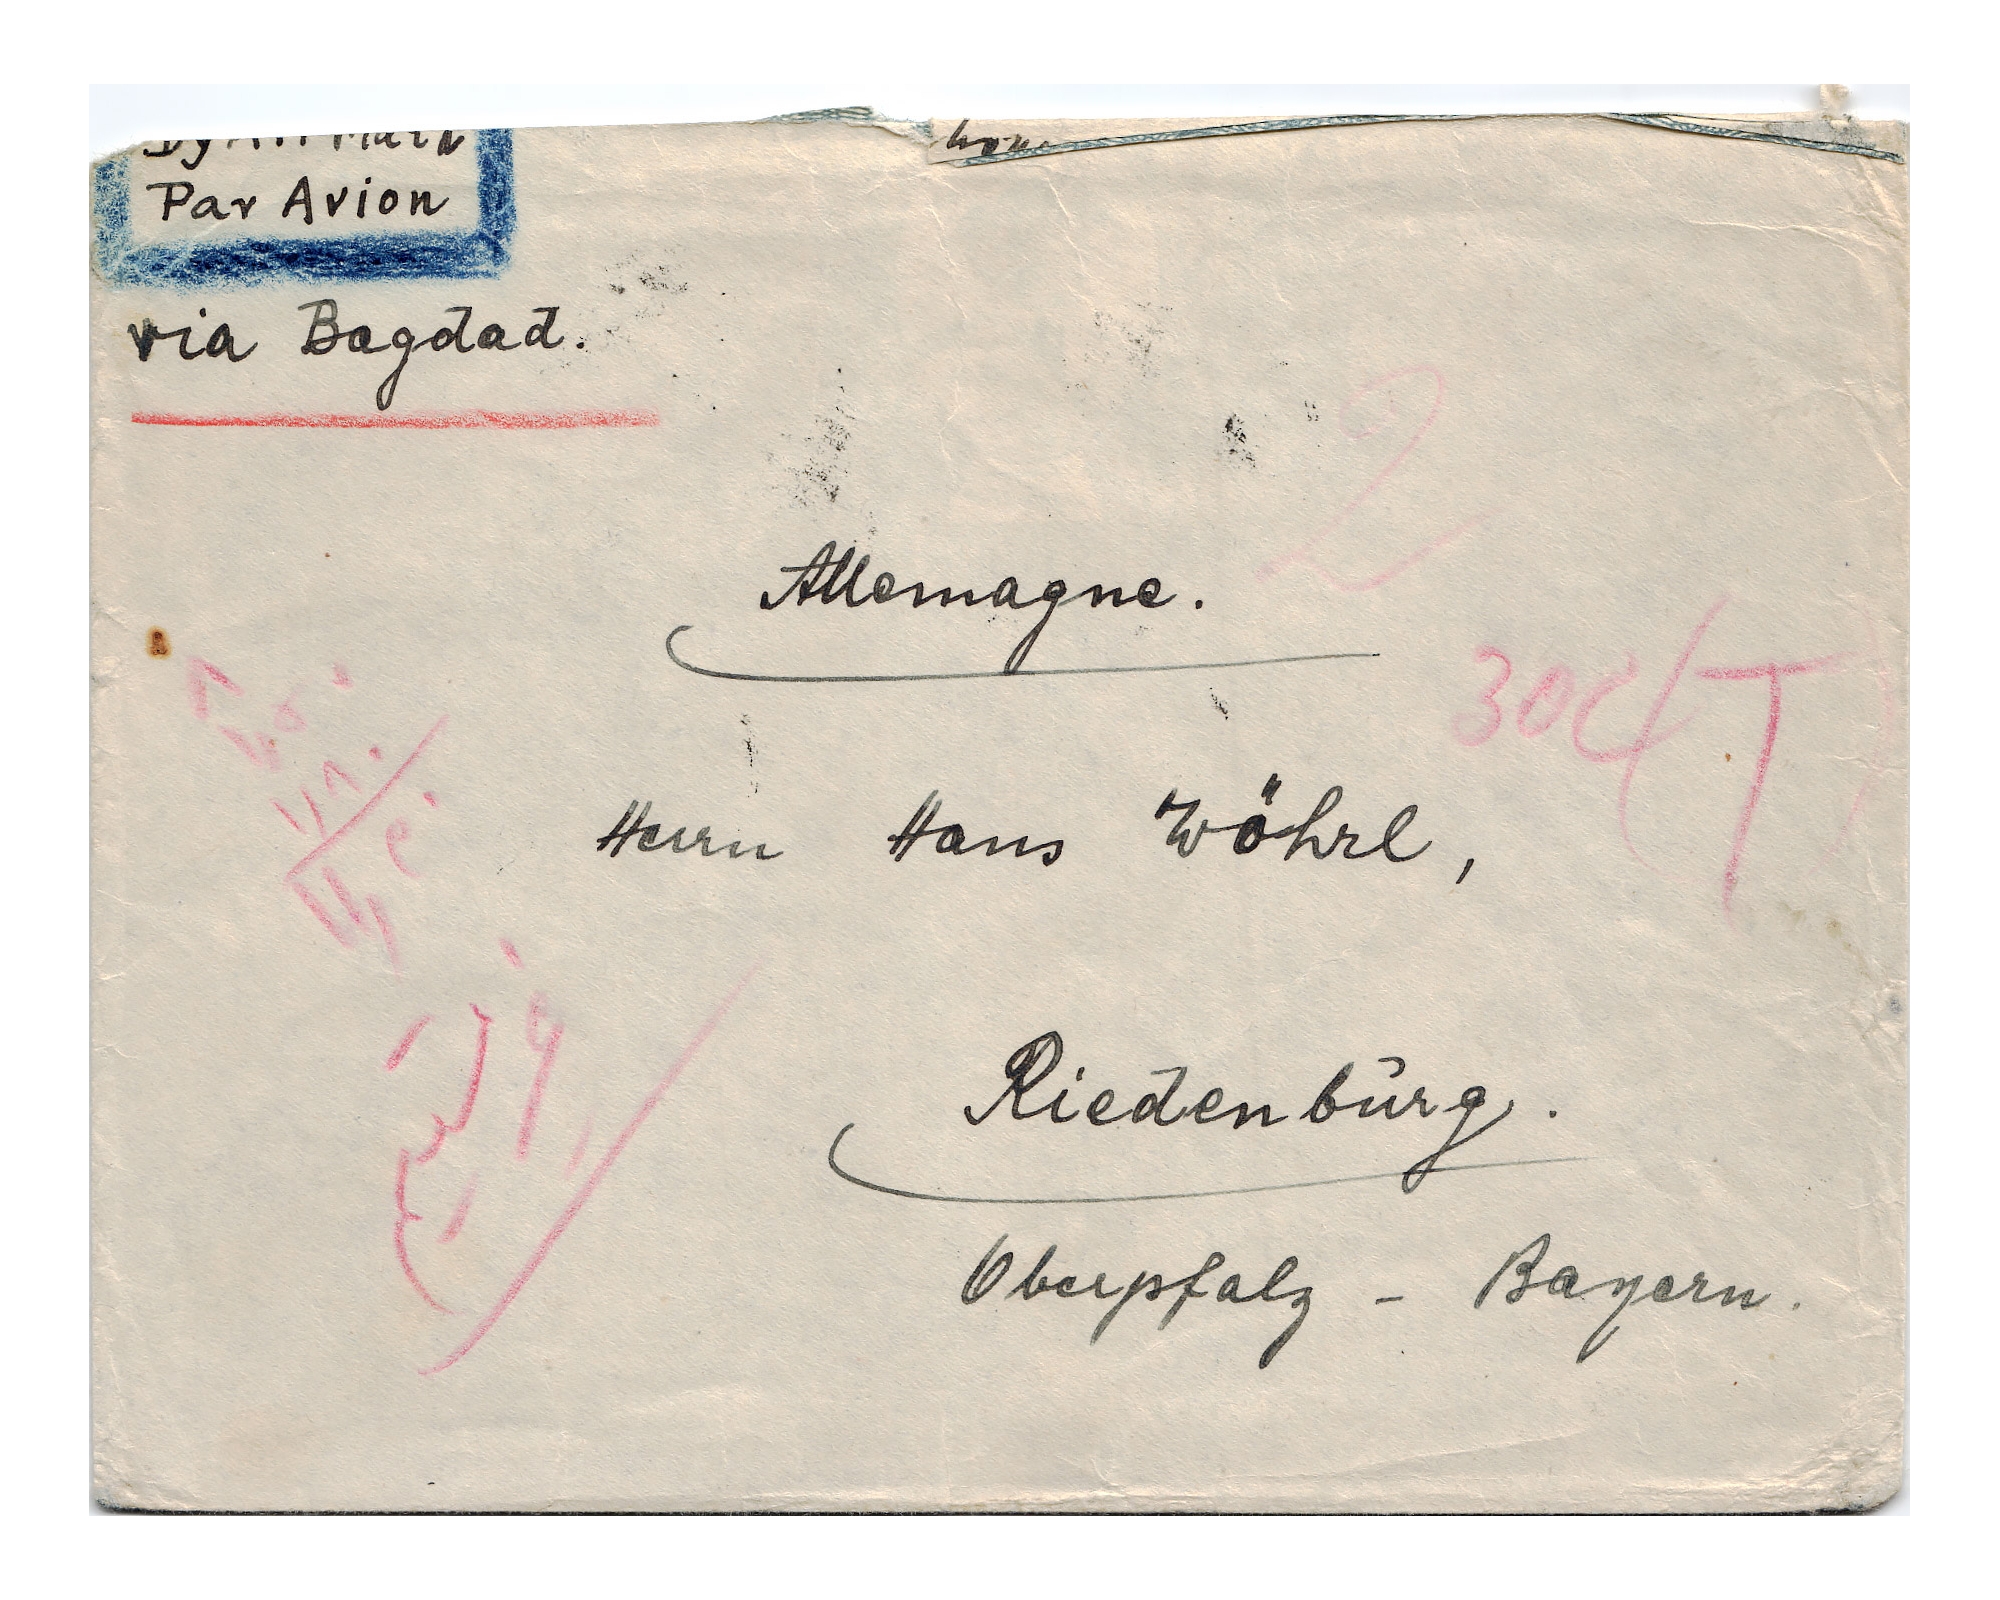 By Air Mail
Par Avion
via Bagdad.
Allemagne.
2
30c (T)
Herrn Hans Wöhrl,
Riedenbūrg.
Oberpfalz - Bayern.